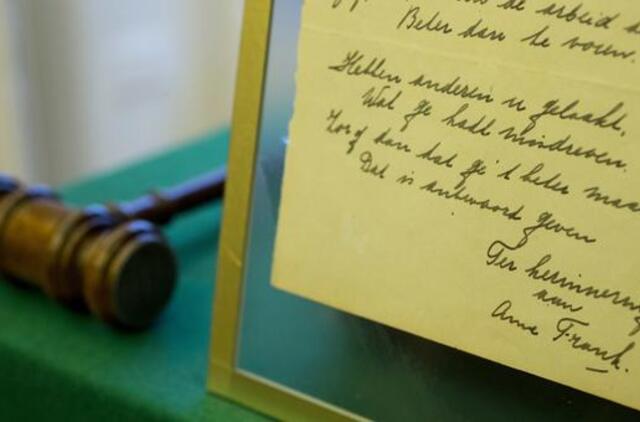 de arbeid
Beter dan te voren.
Hebben anderen u gelaakt,
Wat ge hadt misdreven.
Zorg dan dat gij 't beter maa
Dat is antwoord geven
Ter herinnering
aan
Anne Frank.